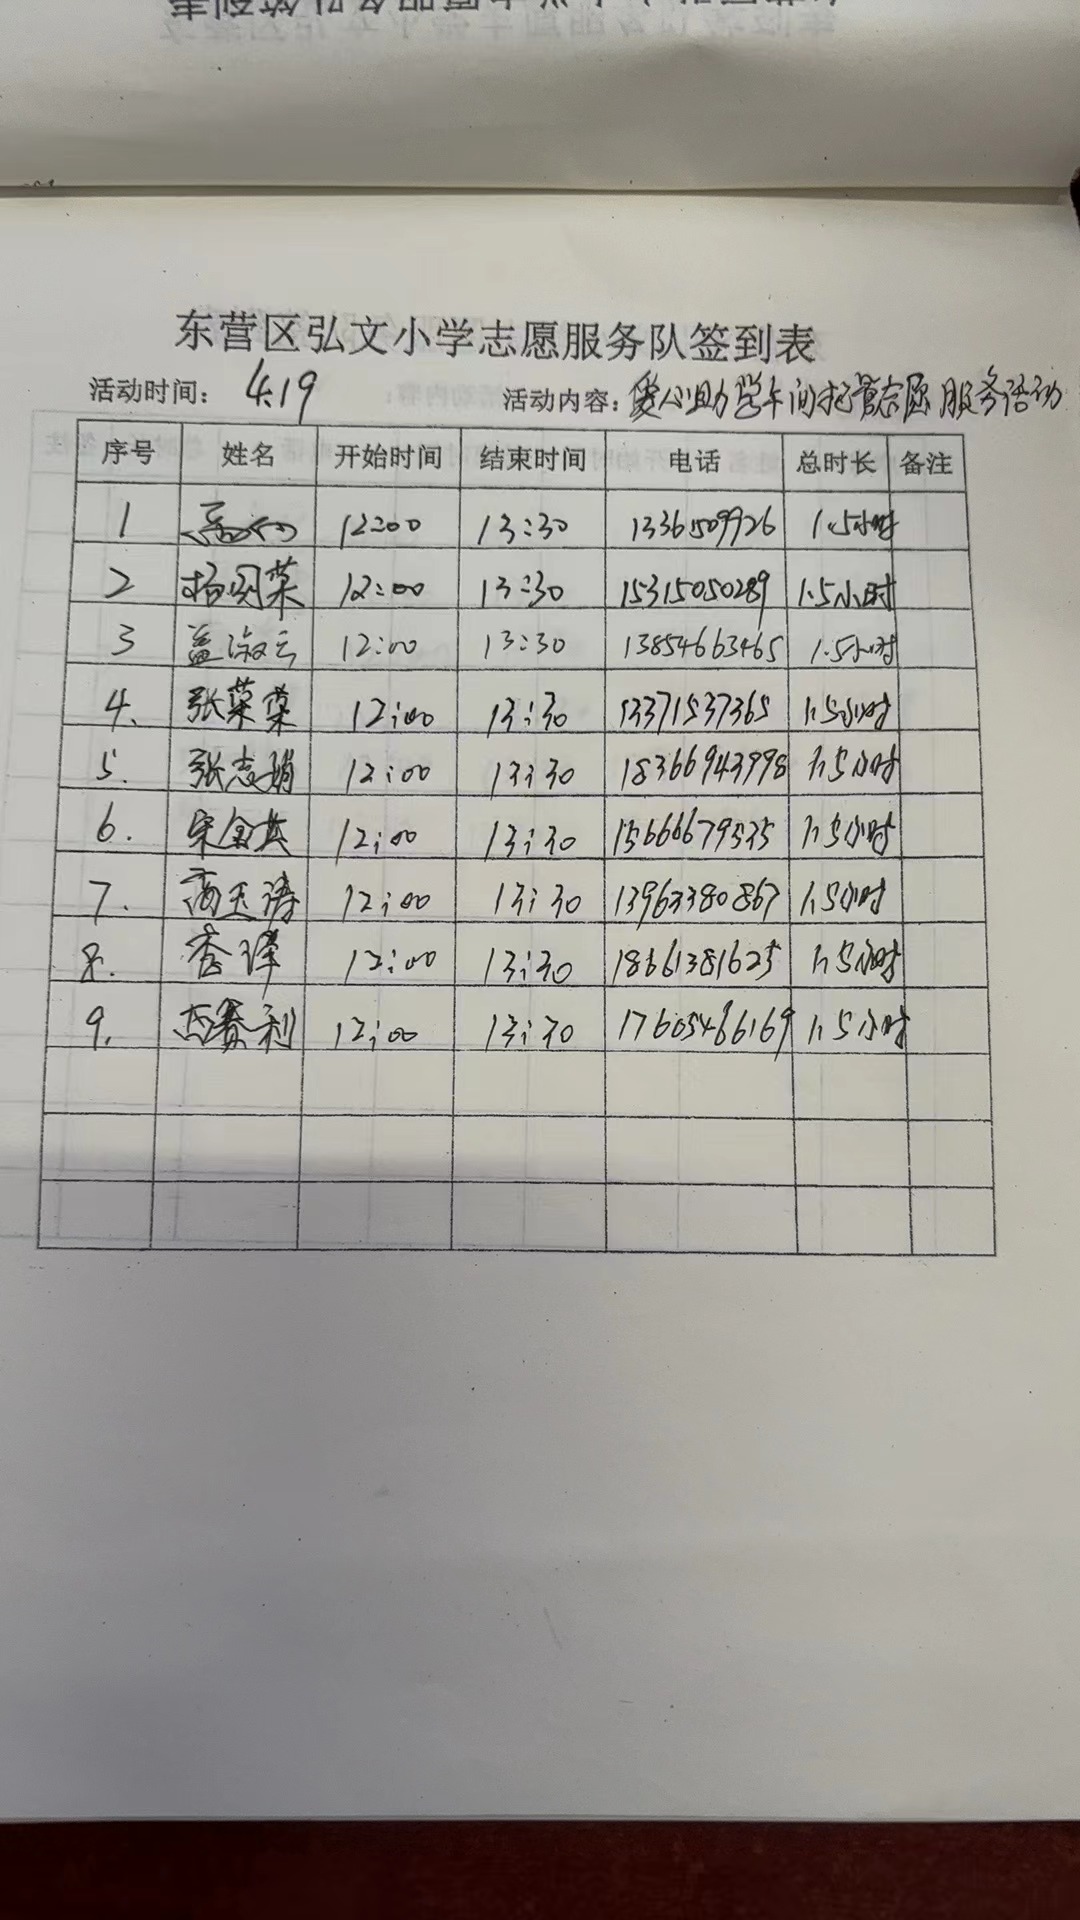 东营区弘文小学志愿服务队签到表
活动时间： 4.19 活动内容：爱心助学午间托管志愿服务活动
序号 姓名 开始时间 结束时间 电话 总时长 备注
1 12:00 13:30 1336509926 1.5小时
2 杨 菜 12:00 13:30 15315050289 1.5小时
3 盖淑云 12:00 13:30 13854663465 1.5小时
4. 张菜菜 12:00 13:30 13371537365 1.5小时
5. 张志娟 12:00 13:30 18366943998 1.5小时
6. 宋 12:00 13:30 15666679535 1.5小时
7. 商玉涛 12:00 13:30 13963380867 1.5小时
8. 12:00 13:30 18661381625 1.5小时
9. 赛利 12:00 13:30 17605466169 1.5小时